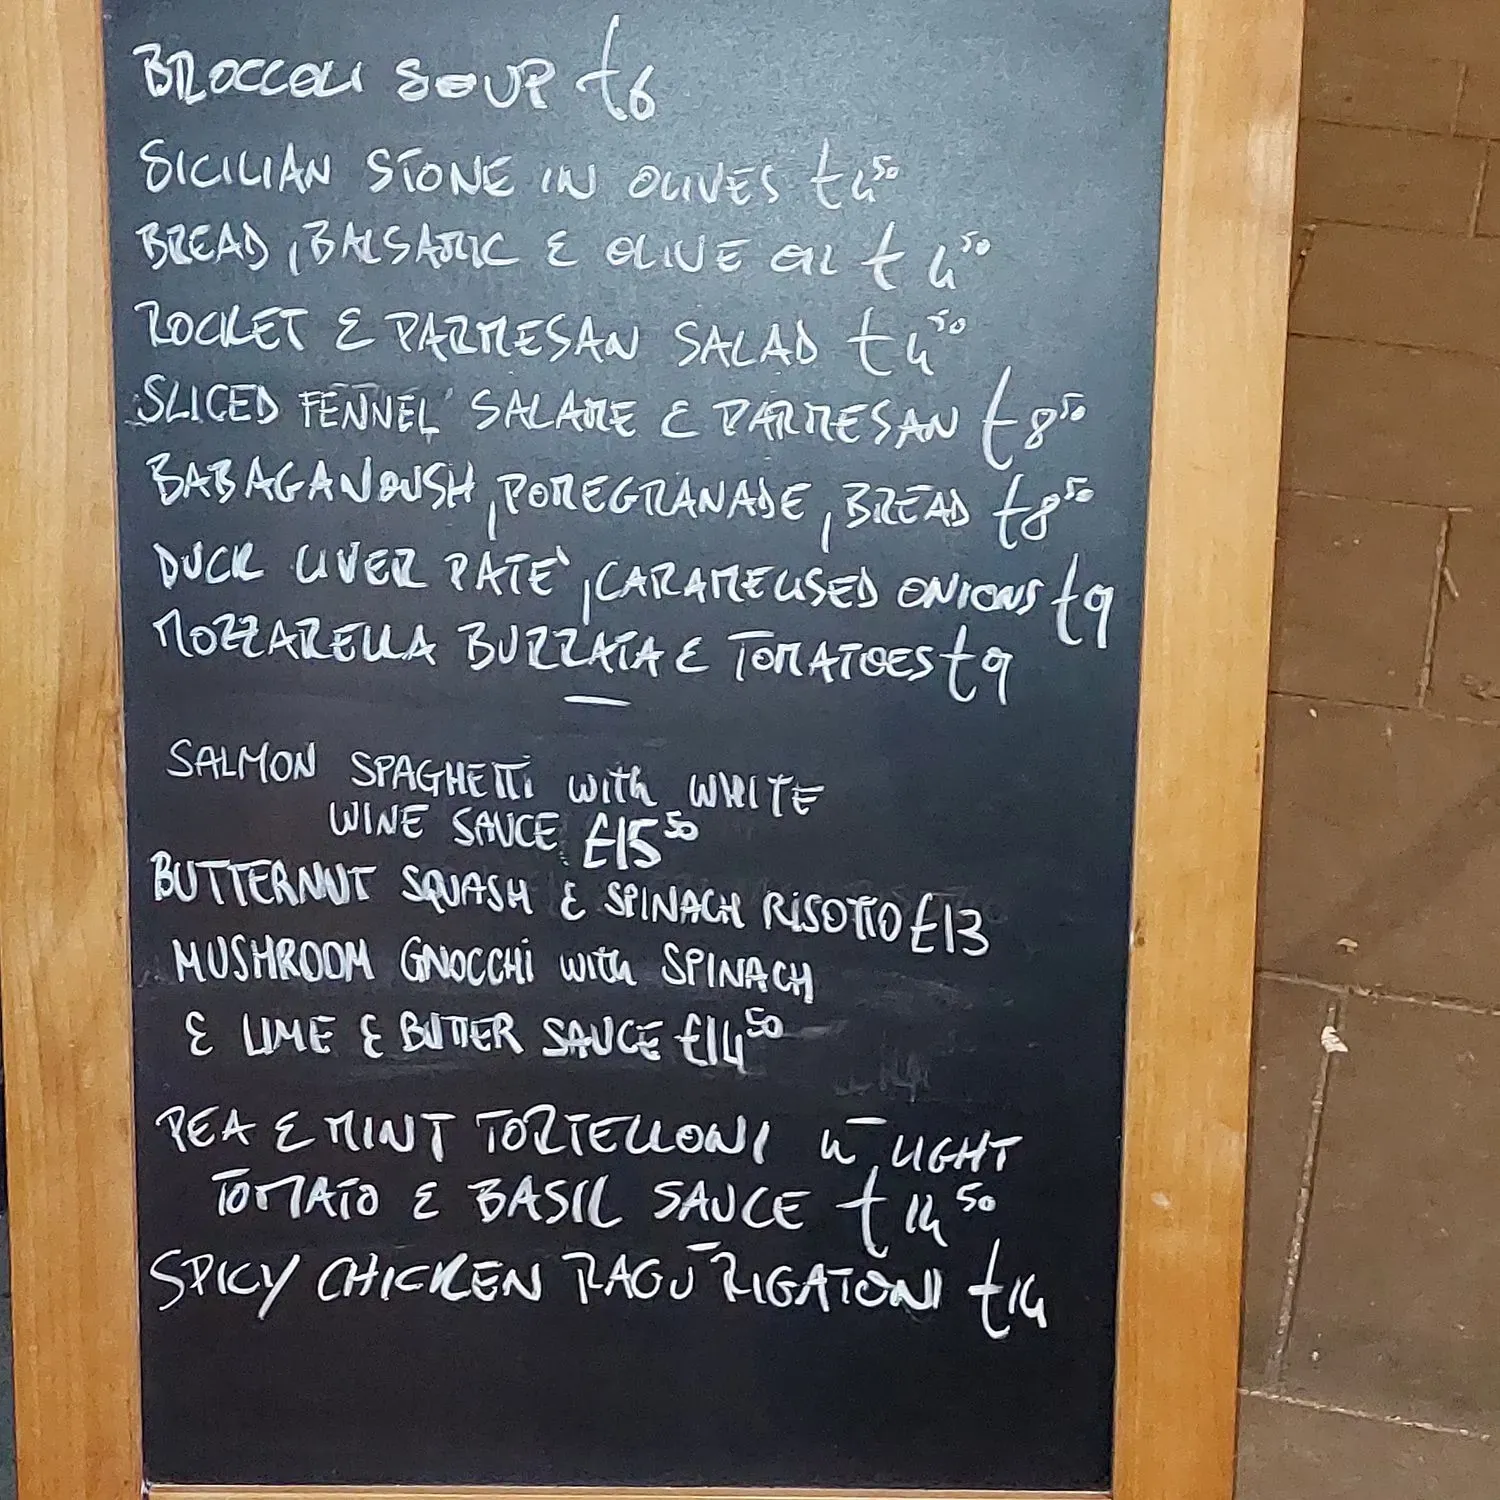 BROCCOLI SOUP £6
SICILIAN STONE IN OLIVES £4 50
BREAD, BALSAMIC & OLIVE OIL £4 50
ROCKET & PARMESAN SALAD £4 50
SLICED FENNEL SALAME & PARMESAN £8 50
BABAGANOUSH, POMEGRANADE, BREAD £8 50
DUCK LIVER PATE', CARAMELISED ONIONS £9
MOZZARELLA BURRATA & TOMATOES £9
—
SALMON SPAGHETTI with WHITE
WINE SAUCE £15 50
BUTTERNUT SQUASH & SPINACH RISOTTO £13
MUSHROOM GNOCCHI with SPINACH
& LIME & BUTTER SAUCE £14 50
PEA & MINT TORTELLONI IN LIGHT
TOMATO & BASIL SAUCE £14 50
SPICY CHICKEN RAGU RIGATONI £14